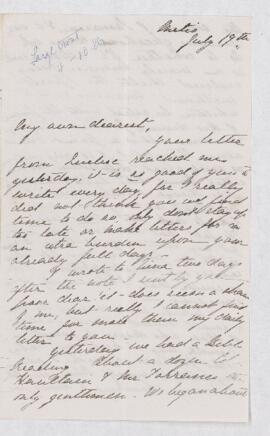 Metis
July 19th
My own dearest,
your letter
from Quebec reached me
yesterday, it is so good of you to
write every day, for I really
did not think you would find
time to do so, only don't stay up
too late or make letters for me
an extra burden upon your
already full days -
I wrote to
two days
after the note I sent by you
poor dear it does seem a shame
in me, but really I cannot find
time for more than my daily
letter to you -
Yesterday we had a Bible
Reading. About a dozen
& Mr Torrance
only gentlemen. We began about